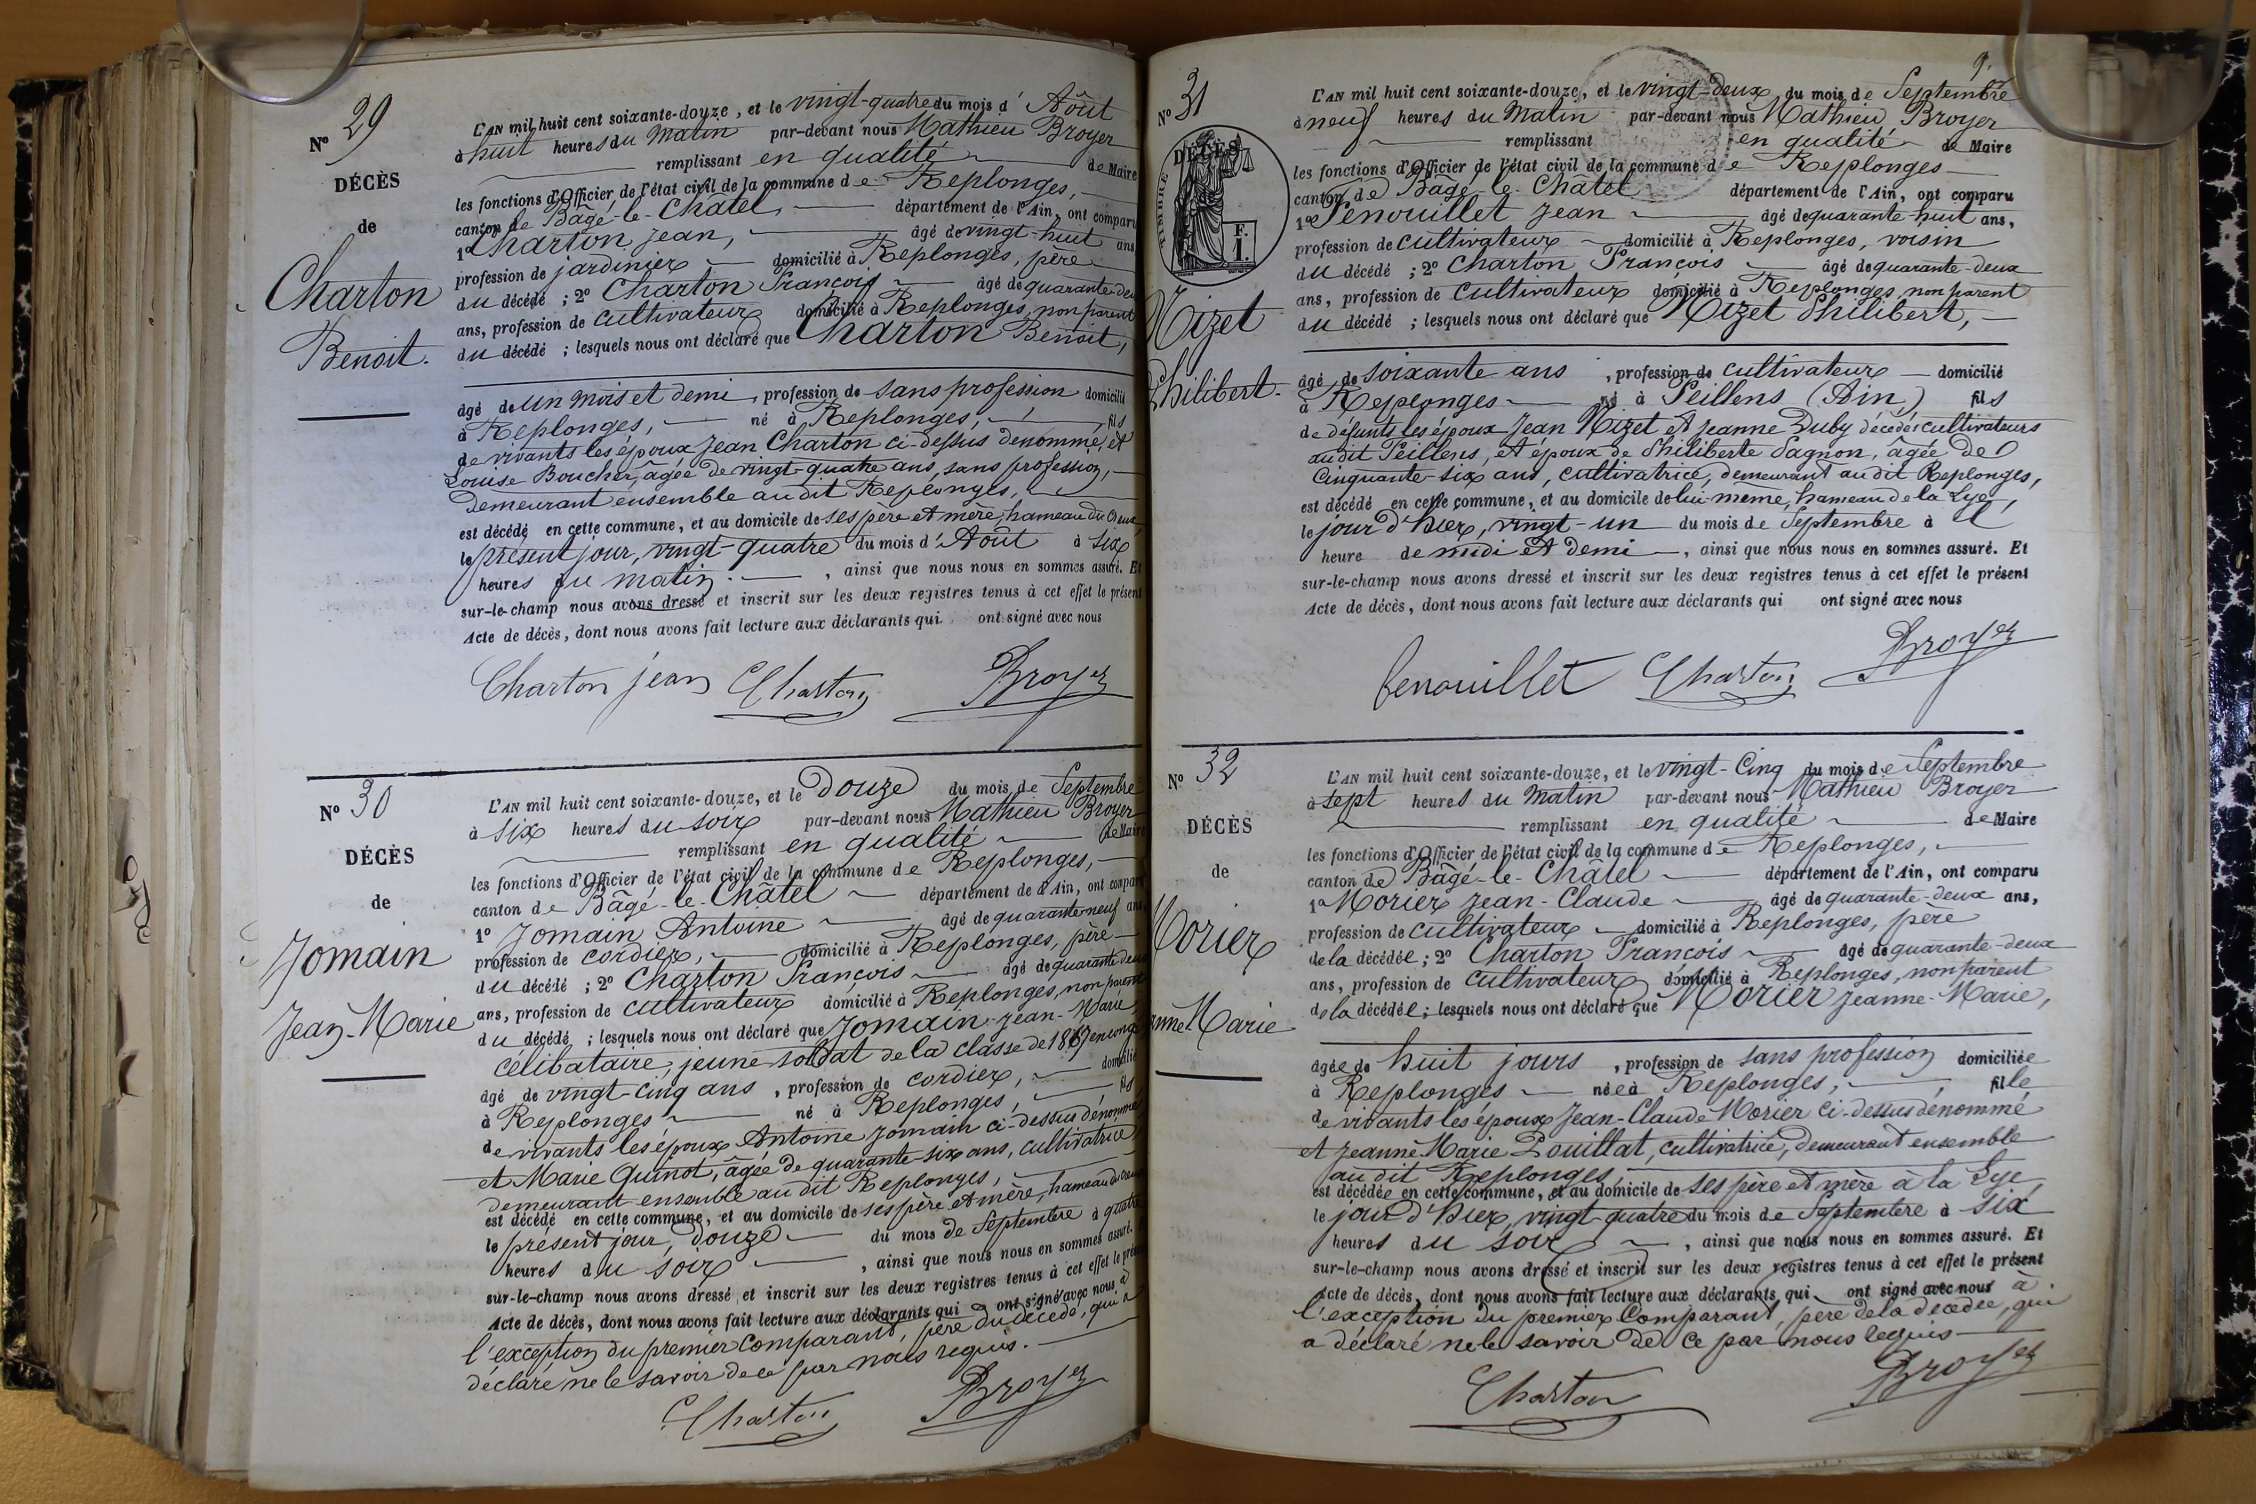 N° 29
DÉCÈS
de
Charton
Benoit.
L'AN mil huit cent soixante-douze, et le vingt-quatre du mois d' Août
à huit heures du Matin par-devant nous Mathieu Broyer
remplissant en qualité de Maire
les fonctions d'Officier de l'état civil de la commune de Replonges,
canton de Bâgé-le-Châtel, département de l'Ain, ont comparu
1° Charton Jean, âgé de vingt-huit ans
profession de jardinier domicilié à Replonges, père
du décédé ; 2° Charton François âgé de quarante-deux
ans, profession de cultivateur domicilié à Replonges, non parent
du décédé ; lesquels nous ont déclaré que Charton Benoit,
âgé de un mois et demi, profession de sans profession domicilié
à Replonges, né à Replonges, fils
de vivants les époux Jean Charton ci-dessus dénommé, et
Louise Boucher, âgée de vingt-quatre ans, sans profession,
demeurant ensemble audit Replonges,
est décédé en cette commune, et au domicile de ses père et mère, hameau du Creux,
le présent jour, vingt-quatre du mois d' Août à six
heures du matin. , ainsi que nous nous en sommes assuré. Et
sur-le-champ nous avons dressé et inscrit sur les deux registres tenus à cet effet le présent
Acte de décès, dont nous avons fait lecture aux déclarants qui ont signé avec nous
Charton jean Charton Broyer
N° 30
DÉCÈS
de
Jomain
Jean-Marie
L'AN mil huit cent soixante-douze, et le Douze du mois de Septembre
à six heures du soir par-devant nous Mathieu Broyer
remplissant en qualité de Maire
les fonctions d'Officier de l'état civil de la commune de Replonges,
canton de Bâgé-le-Châtel département de l'Ain, ont comparu
1° Jomain Antoine âgé de quarante neuf ans,
profession de cordier, domicilié à Replonges, père
du décédé ; 2° Charton François âgé de quarante deux
ans, profession de cultivateur domicilié à Replonges, non parent
du décédé ; lesquels nous ont déclaré que Jomain Jean-Marie,
célibataire, jeune soldat de la classe de 1867 en congé
âgé de vingt-cinq ans, profession de cordier, domicilié
à Replonges né à Replonges, fils
de vivants les époux Antoine Jomain ci-dessus dénommé
et Marie Guinot, âgée de quarante-six ans, cultivatrice,
demeurant ensemble audit Replonges,
est décédé en cette commune, et au domicile de ses père et mère, hameau du Creux
le présent jour, douze du mois de Septembre à quatre
heures du soir , ainsi que nous nous en sommes assuré.
sur-le-champ nous avons dressé et inscrit sur les deux registres tenus à cet effet le présent
Acte de décès, dont nous avons fait lecture aux déclarants qui ont signé avec nous à
l'exception du premier comparant, père du décédé, qui a
déclaré ne le savoir de ce par nous requis.
Charton Broyer
9.
N° 31
TIMBRE
DÉCÈS
F.
1.
Mizet
Philibert.
L'AN mil huit cent soixante-douze, et le vingt-deux du mois de Septembre
à neuf heures du Matin par-devant nous Mathieu Broyer
remplissant en qualité de Maire
les fonctions d'Officier de l'état civil de la commune de Replonges
canton de Bâgé-le-Châtel département de l'Ain, ont comparu
1° Fenouillet Jean âgé de quarante-huit ans,
profession de cultivateur domicilié à Replonges, voisin
du décédé ; 2° Charton François âgé de quarante-deux
ans, profession de cultivateur domicilié à Replonges, non parent
du décédé ; lesquels nous ont déclaré que Mizet Philibert,
âgé de soixante ans, profession de cultivateur domicilié
à Replonges né à Feillens (Ain) fils
de défunts les époux Jean Mizet et Jeanne Duby décédés cultivateurs
audit Feillens, et époux de Philiberte Pagnon, âgée de
cinquante-six ans, cultivatrice, demeurant audit Replonges,
est décédé en cette commune, et au domicile de lui-même, hameau de la Lye,
le jour d'hier, vingt-un du mois de Septembre à l'
heure de midi et demi, ainsi que nous nous en sommes assuré. Et
sur-le-champ nous avons dressé et inscrit sur les deux registres tenus à cet effet le présent
Acte de décès, dont nous avons fait lecture aux déclarants qui ont signé avec nous
fenouillet Charton Broyer
N° 32
DÉCÈS
de
Morier
anne Marie
L'AN mil huit cent soixante-douze, et le vingt-Cinq du mois de Septembre
à sept heures du Matin par-devant nous Mathieu Broyer
remplissant en qualité de Maire
les fonctions d'Officier de l'état civil de la commune de Replonges,
canton de Bâgé-le-Châtel département de l'Ain, ont comparu
1° Morier Jean-Claude âgé de quarante-deux ans,
profession de cultivateur domicilié à Replonges, père
de la décédée ; 2° Charton François âgé de quarante-deux
ans, profession de cultivateur domicilié à Replonges, non parent
de la décédée ; lesquels nous ont déclaré que Morier Jeanne-Marie,
âgée de huit jours, profession de sans profession domiciliée
à Replonges née à Replonges, fille
de vivants les époux Jean-Claude Morier ci-dessus dénommé
et Jeanne Marie Pouillat, cultivatrice, demeurant ensemble
audit Replonges,
est décédée en cette commune, et au domicile de ses père et mère à la Lye,
le jour d'hier, vingt-quatre du mois de Septembre à six
heures du soir , ainsi que nous nous en sommes assuré. Et
sur-le-champ nous avons dressé et inscrit sur les deux registres tenus à cet effet le présent
Acte de décès, dont nous avons fait lecture aux déclarants qui ont signé avec nous à
l'exception du premier Comparant, père de la décédée, qui
a déclaré ne le savoir de ce par nous requis
Charton Broyer